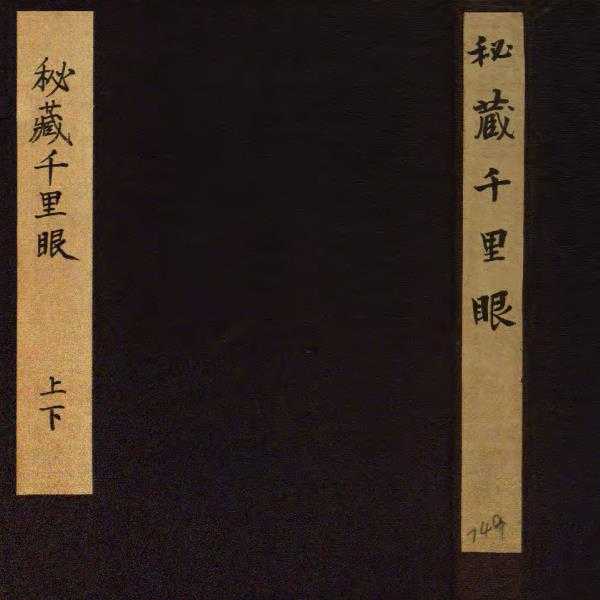 秘蔵千里眼
749
秘藏千里眼
上下